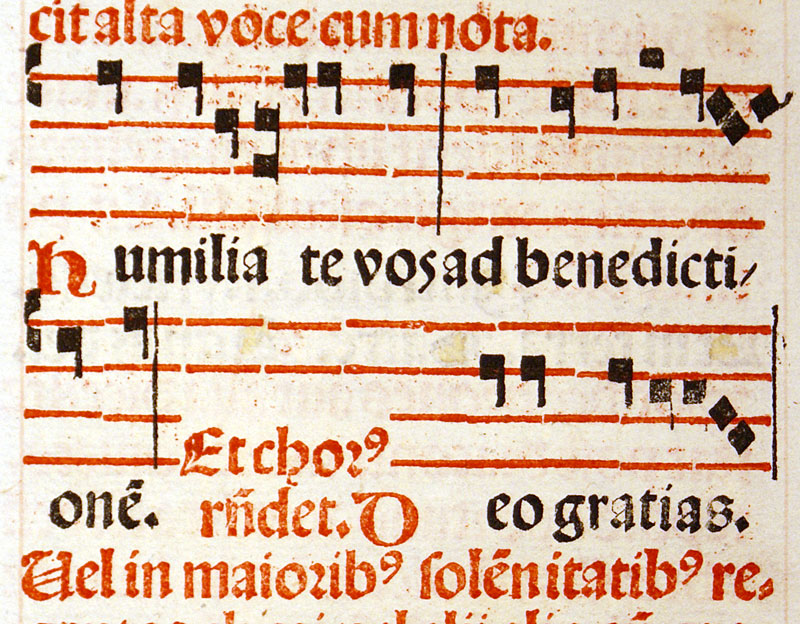 cit alta voce cum nota.
Humilia te vos ad benedicti/
onē. Et chorꝰ
rn̄det. Deo gratias.
Uel in maioribꝰ solēnitatibꝰ re,